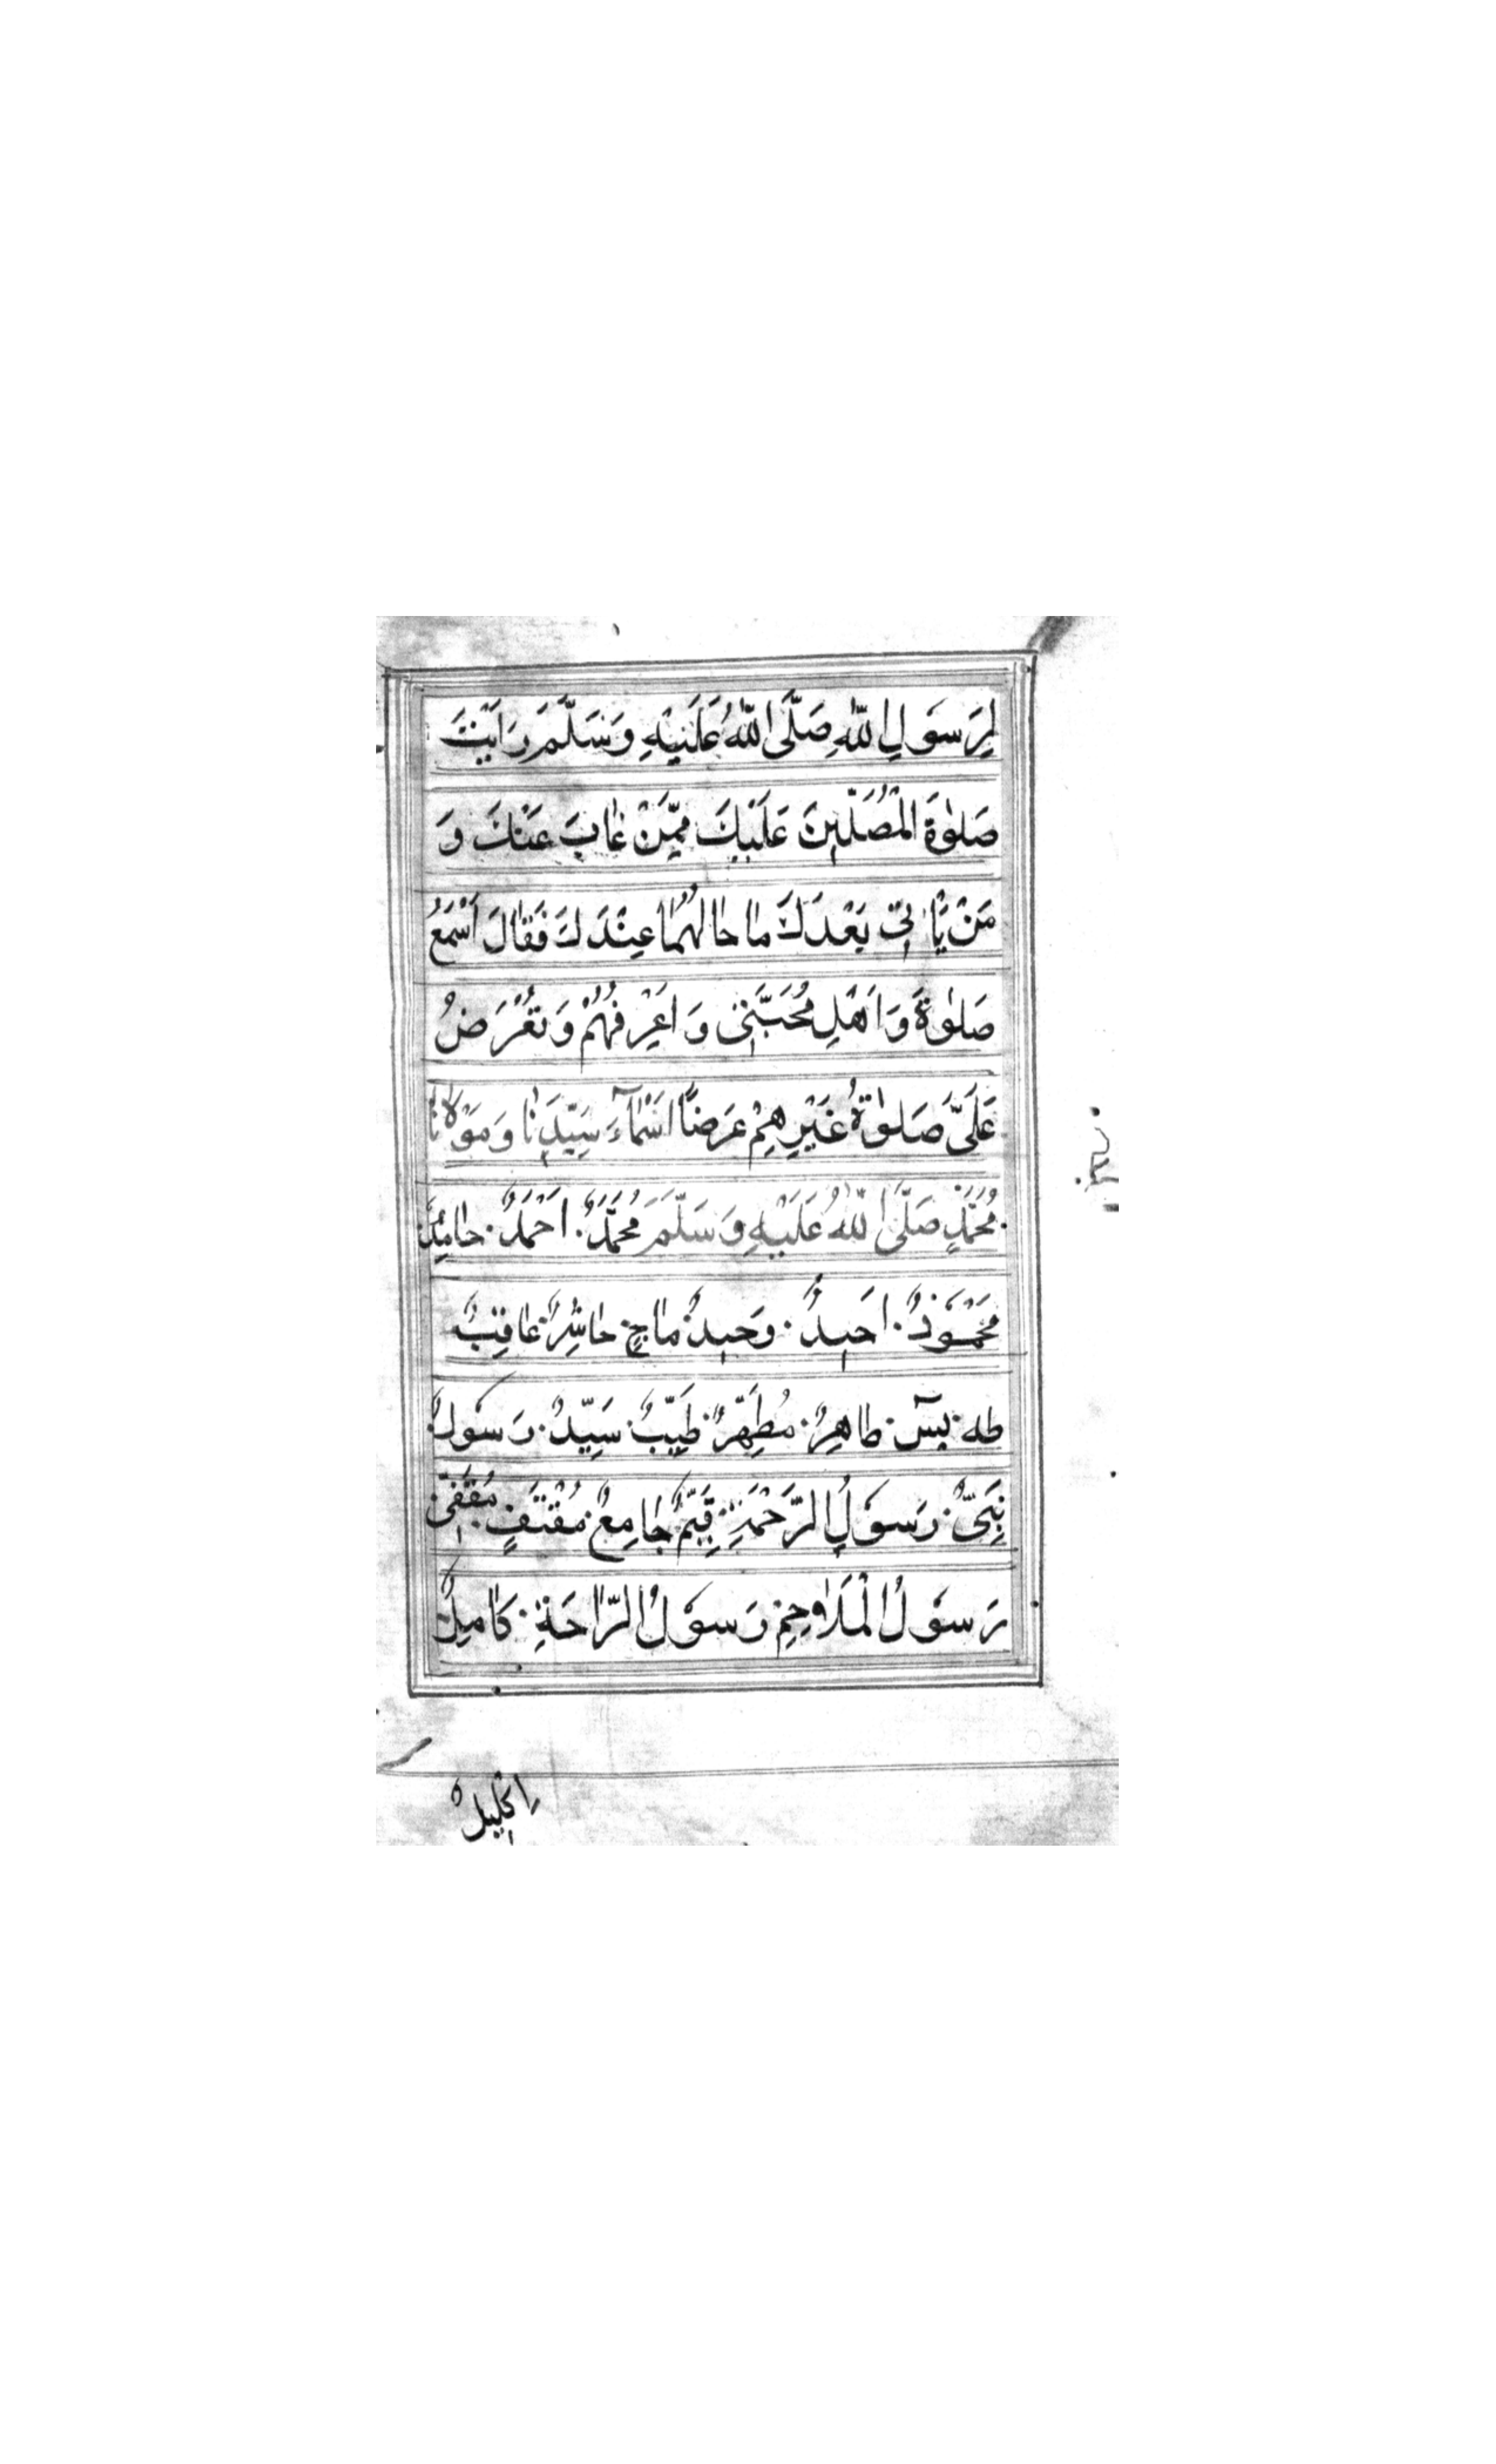 لِرَسُوْلِ اللّٰهِ صَلَّى اللّٰهُ عَلَيْهِ وَسَلَّمَ رَاَيْتَ
صَلٰوةَ الْمُصَلِّيْنَ عَلَيْكَ مِمَّنْ غَابَ عَنْكَ وَ
مَنْ يَّاْتِىْ بَعْدَكَ مَا حَالُهُمَا عِنْدَكَ فَقَالَ اَسْمَعُ
صَلٰوةَ وَاَهْلِ مُحَبَّتِىْ وَاَعْرِفُهُمْ وَتُعْرَضُ
عَلَىَّ صَلٰوةُ غَيْرِهِمْ عَرَضًا اَسْمَآءَ سَيِّدِنَا وَمَوْلَانَا
مُحَمَّدٍ صَلَّى اللّٰهُ عَلَيْهِ وَسَلَّمَ مُحَمَّدٌ اَحْمَدٌ حَامِدٌ
مَحْمُوْدٌ اَحِيْدٌ وَحِيْدٌ مَاحٍ حَاشِرٌ عَاقِبٌ
طه يٓسٓ طَاهِرٌ مُطَهِّرٌ طَيِّبٌ سَيِّدٌ رَسُوْلٌ
نَبِىٌّ رَسُوْلُ الرَّحْمَةِ قَيِّمٌ جَامِعٌ مُقْتَفٍ مُقَفّى
رَسُوْلُ الْمَلَاحِمِ رَسُوْلُ الرَّاحَةِ كَامِلٌ
اِكْلِيْلٌ